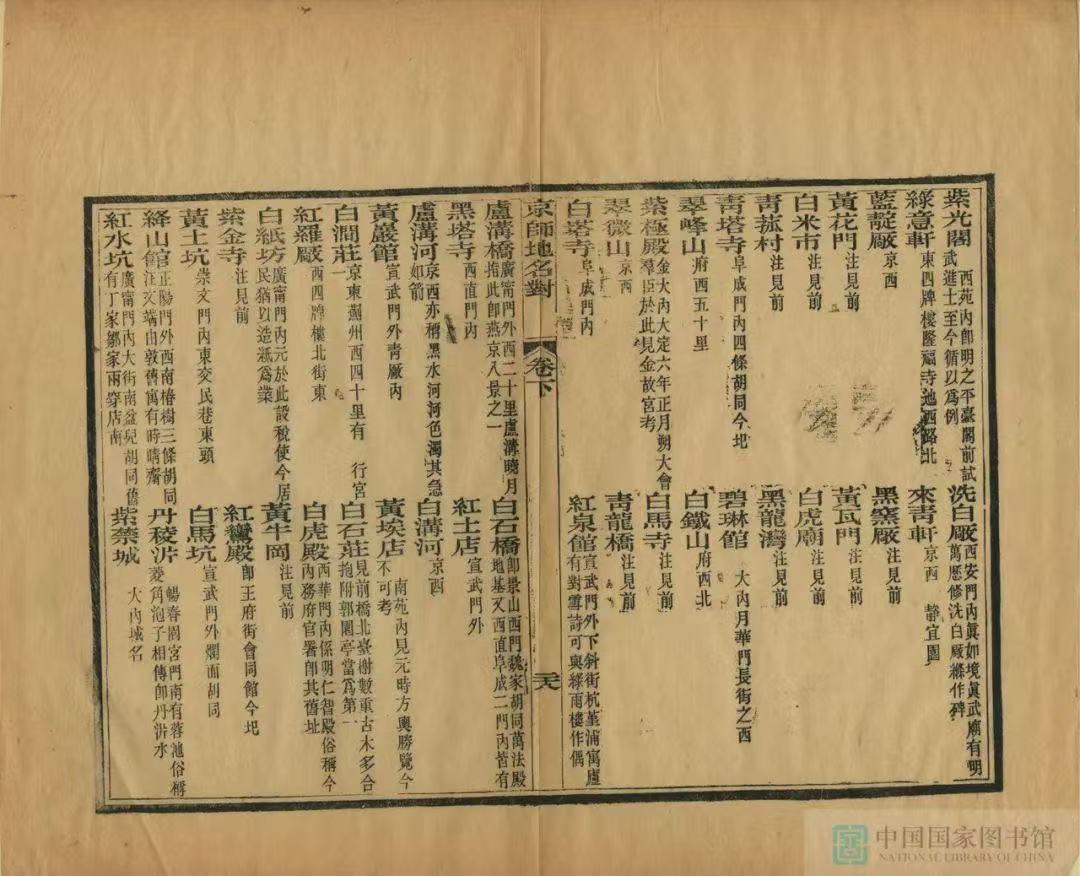 紫光閣 西苑內卽明之平臺閣前試武進士至今循以爲例 洗白厰 西安門內眞如境眞武廟有明萬厯修洗白厰緣作碑
綠意軒 東四牌樓隆福寺池西路北 來青軒 京西靜宜園
藍靛厰 京西 黑窯厰 注見前
黃花門 注見前 黃瓦門 注見前
白米市 注見前 白虎廟 注見前
靑菰村 注見前 黑龍灣 注見前
靑塔寺 阜成門內四條胡同今圯 碧琳館 大內月華門長街之西
翠峰山 府西五十里 白鐵山 府西北
紫極殿 金大內大定六年正月朔大會羣臣於此見金故宮考 白馬寺 注見前
翠微山 京西 靑龍橋 注見前
白塔寺 阜成門內 紅泉館 宣武門外下斜街杭堇浦寓廬有對雪詩可與綠雨樓作偶
京師地名對 卷下 二十六
盧溝橋 廣甯門外西二十里盧溝曉月指此卽燕京八景之一 白石橋 卽景山西門魏家胡同萬法殿地基又西直阜成二門內皆有
黑塔寺 西直門內 紅土店 宣武門外
盧溝河 京西亦稱黑水河河色濁其急如箭 白溝河 京西
黃巖館 宣武門外靑厰內 黃埃店 南苑內見元時方輿勝覽今不可考
白澗莊 京東薊州西四十里有行宮一 白石莊 見前橋北臺榭數重古木多合抱附郭園亭當爲第一
紅羅厰 西四牌樓北街東 白虎殿 西華門內係明仁智殿俗稱今內務府官署卽其舊址
白紙坊 廣甯門內元於此設稅使今居民猶以造紙爲業 黃牛岡 注見前
紫金寺 注見前 紅鸞殿 卽王府街會同館今圯
黃土坑 崇文門內東交民巷東頭 白馬坑 宣武門外爛面胡同
絳山館 正陽門外西南椿樹三條胡同汪文端由敦舊寓有時晴齋 丹稜沜 暢春閣宮門南有蓉池俗稱菱角泡子相傳卽丹沜水
紅水坑 廣甯門內大街南盆兒胡同舊有丁家鄒家兩穿店南 紫禁城 大內城名
中国国家图书馆
NATIONAL LIBRARY OF CHINA